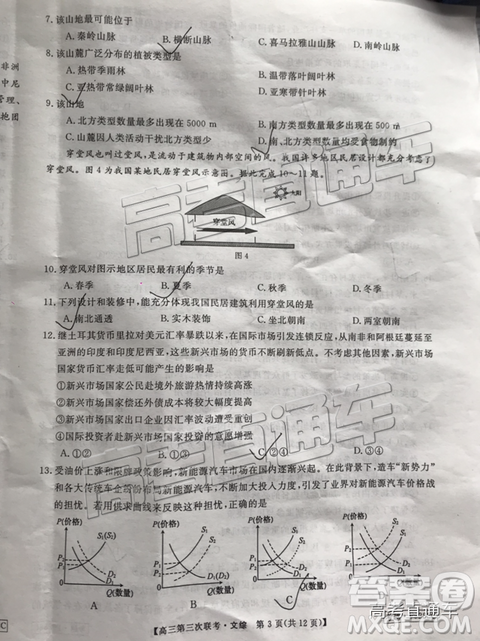 7. 该山地最可能位于
A. 秦岭山脉 B. 横断山脉 C. 喜马拉雅山山脉 D. 南岭山脉
8. 该山麓广泛分布的植被类型是
A. 热带季雨林 B. 温带落叶阔叶林
C. 亚热带常绿阔叶林 D. 亚寒带针叶林
9. 该山地
A. 北方类型数量最多出现在5000 m B. 南方类型数量最多出现在
C. 山麓因人类活动干扰北方类型少 D. 南、北方类型数量均受食物制约
穿堂风也叫过堂风,是流动于建筑物内部空间的风。我国许多地区民居设计都充分考虑了
穿堂风。图4为我国某地民居穿堂风示意图。据此完成10~11题。
穿堂风
图4
10. 穿堂风对图示地区居民最有利的季节是
A. 春季 B. 夏季 C. 秋季 D. 冬季
11. 下列设计和装修中,能充分体现我国民居建筑利用穿堂风的是
A. 南北通透 B. 实木装饰 C. 坐北朝南 D. 两室朝南
12. 继土耳其货币里拉对美元汇率暴跌以来,在国际市场引发连锁反应,从南非和阿根廷蔓延至
亚洲的印度和印度尼西亚,这些新兴市场的货币不断刷新新低。不考虑其他因素,新兴市场国
家货币汇率走低可能产生的影响是
①新兴市场国家公民赴境外旅游热情持续高涨
②新兴市场国家偿还外债成本将较大幅度提高
③新兴市场国家出口企业因汇率波动遭受重创
④国际投资者赴新兴市场国家投资的意愿增强
A. ①② B. ①③ C. ②④ D. ③④
13. 受油价上涨和限牌政策影响,新能源汽车市场在国内逐渐兴起。在此背景下,造车“新势力”
和各大传统车企纷纷布局,不断加大投入力度,引发了业界对新能源汽车价格战
的担忧。若用供求曲线来反映这种担忧,正确的是
P(价格) P(价格) P(价格) P(价格)
Q(数量) Q(数量) Q(数量) Q(数量)
A B C D
【高三第三次联考·文综 第3页(共12页)】
高考直通车
高考直通车
答案圈
高考直通车